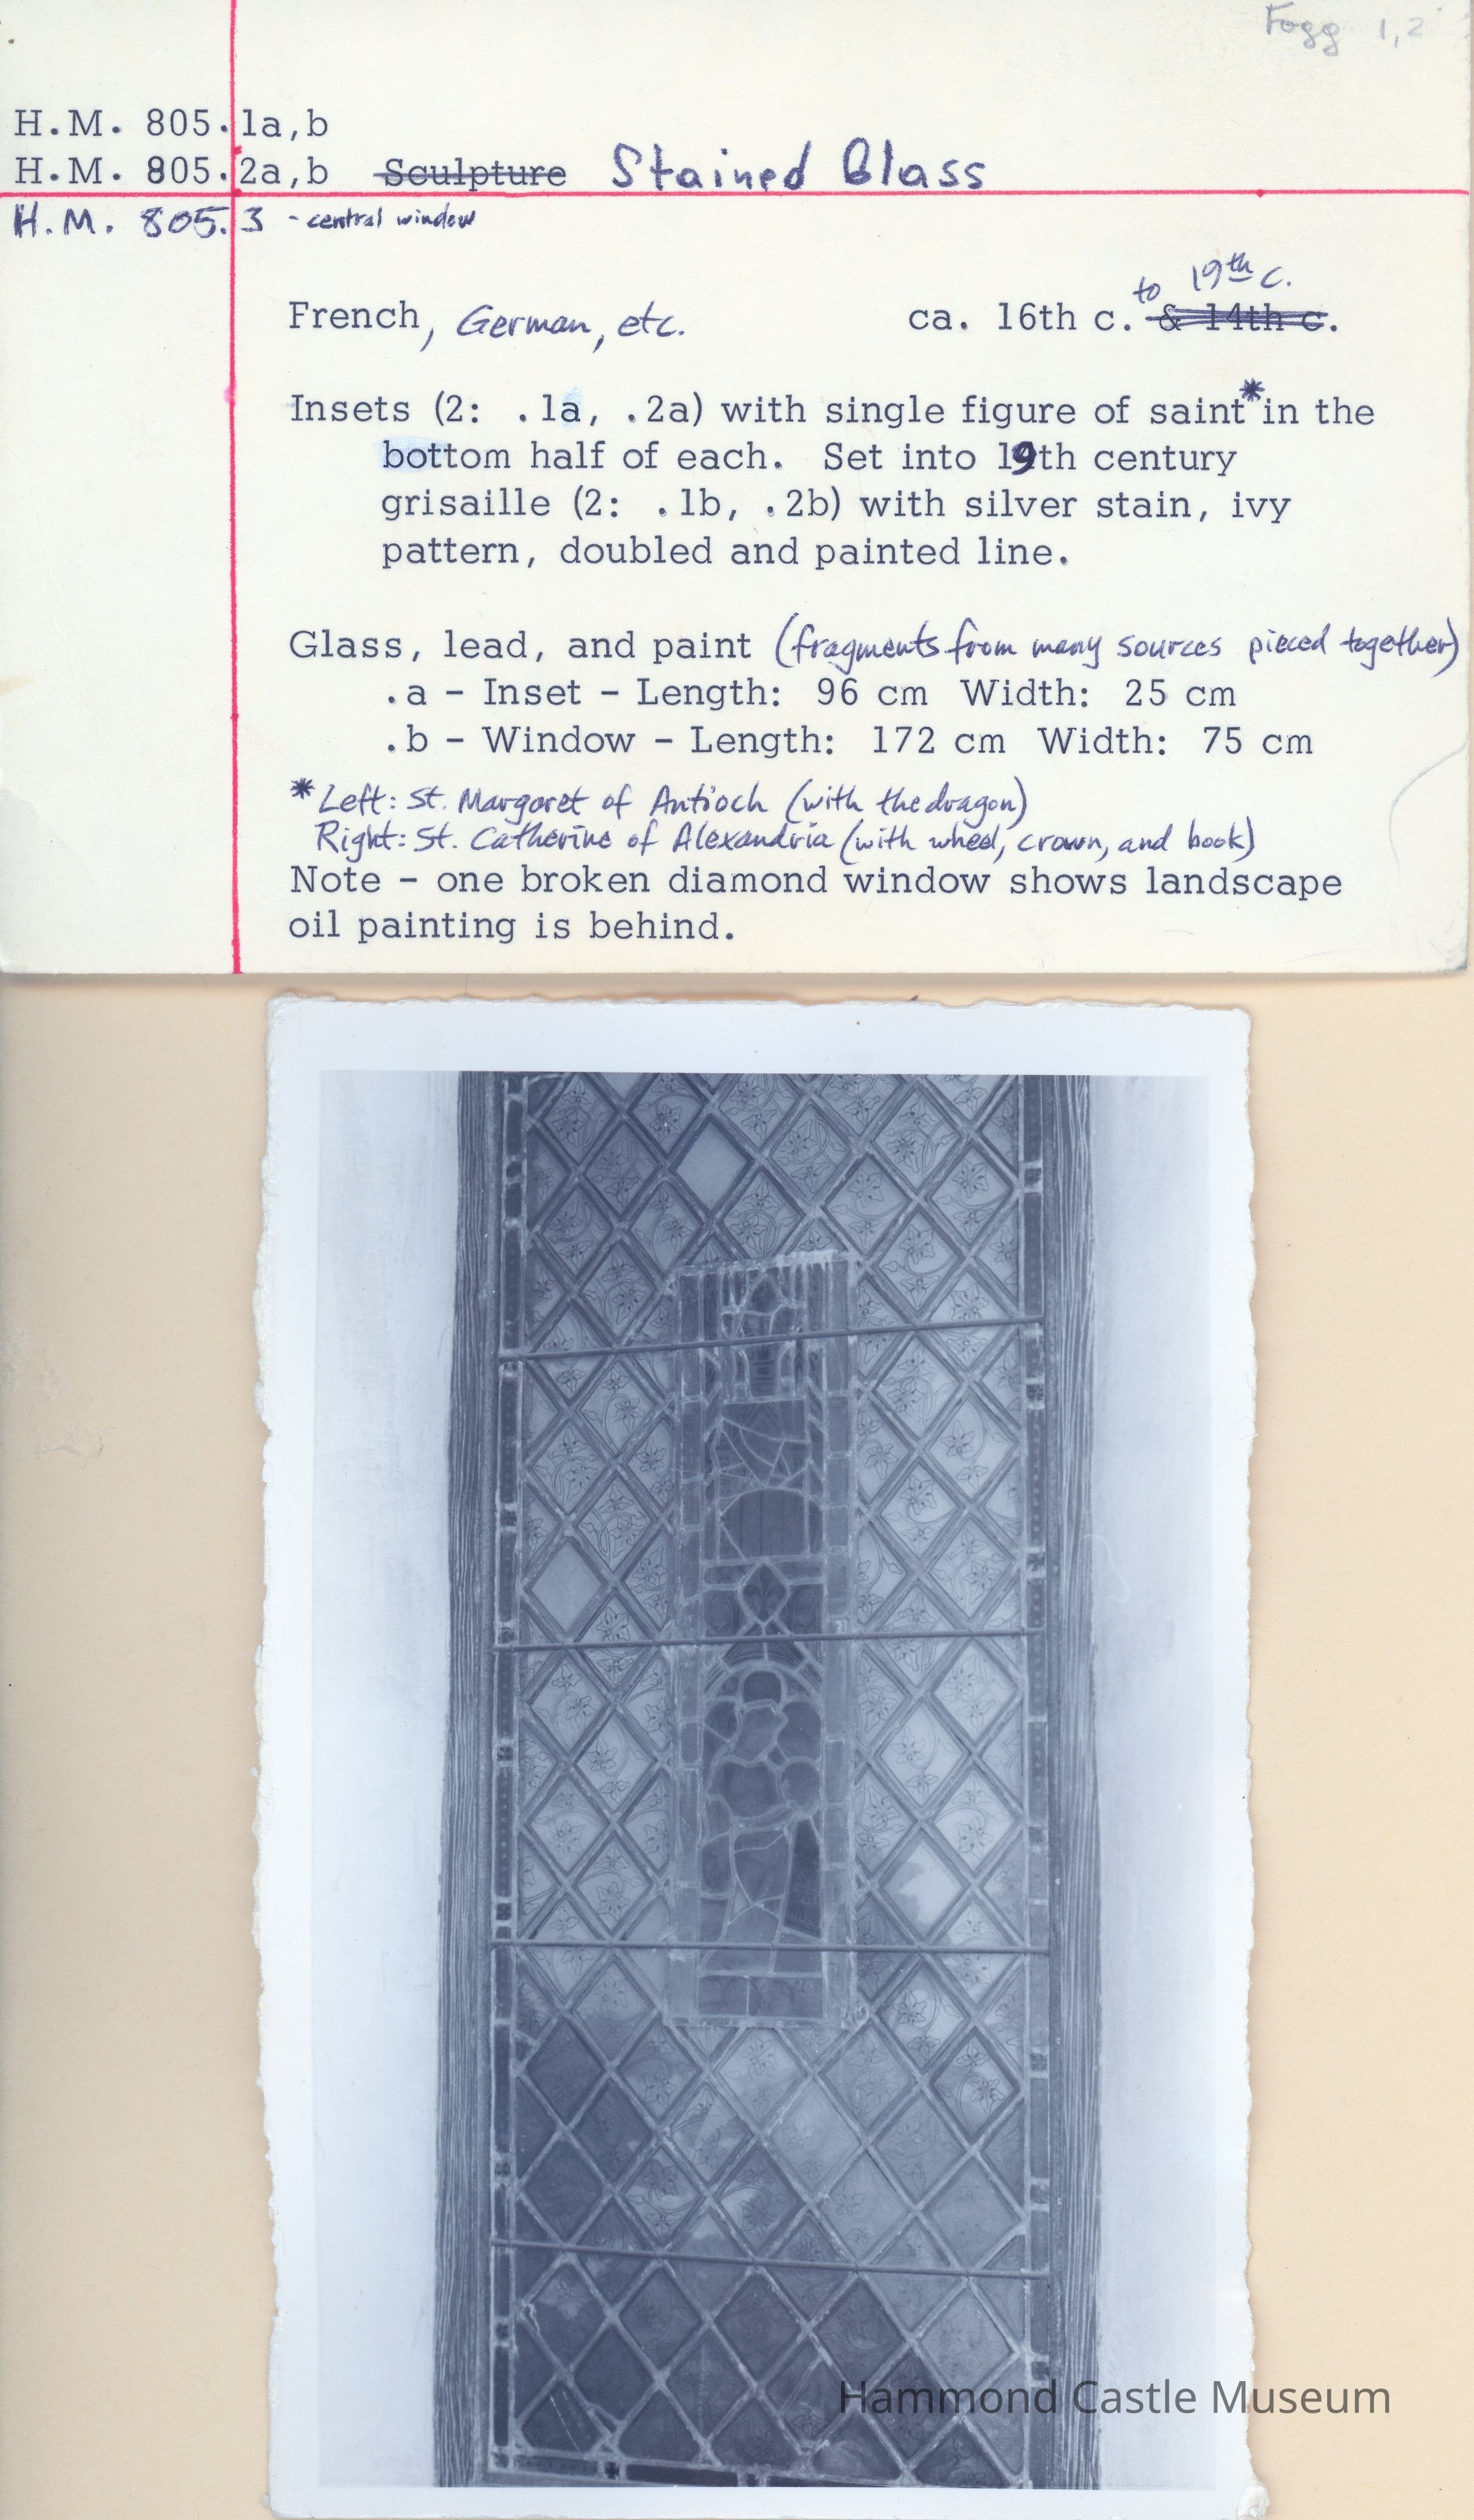 Fogg 1,2
H.M. 805.1a,b
H.M. 805.2a,b Sculpture Stained Glass
H.M. 805.3 - central window
to 19th c.
French, German, etc. ca. 16th c. & 14th c.
Insets (2: .1a, .2a) with single figure of saint* in the
bottom half of each. Set into 19th century
grisaille (2: .1b, .2b) with silver stain, ivy
pattern, doubled and painted line.
Glass, lead, and paint (fragments from many sources pieced together)
.a - Inset - Length: 96 cm Width: 25 cm
.b - Window - Length: 172 cm Width: 75 cm
* Left: St. Margaret of Antioch (with the dragon)
Right: St. Catherine of Alexandria (with wheel, crown, and book)
Note - one broken diamond window shows landscape
oil painting is behind.
Hammond Castle Museum